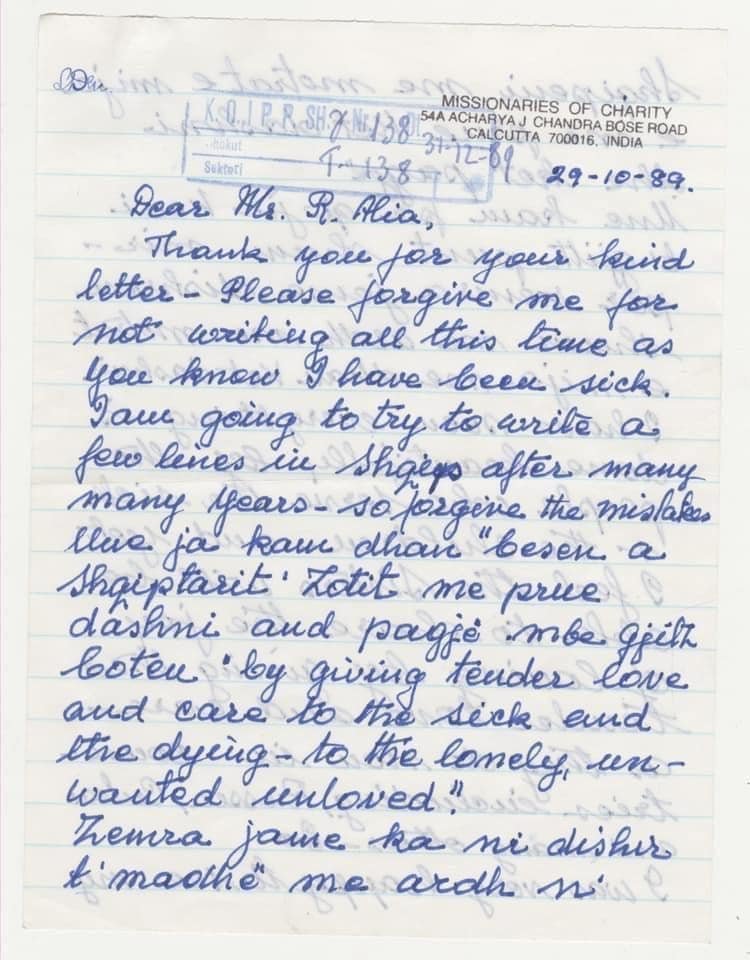 MISSIONARIES OF CHARITY
54A ACHARYA J CHANDRA BOSE ROAD
CALCUTTA 700016, INDIA
K.Q.I P.R.SH
7 138 31-12-89
Sektori T- 138
29-10-89.
Dear Mr. R. Alia,
Thank you for your kind
letter - Please forgive me for
not writing all this time as
you know I have been sick.
I am going to try to write a
few lines in Shqips after many
many years - so forgive the mistakes
Une ja kam dhan "besen a
Shqiptarit" Zotit me prue
dashni and pagjë mbe gjith
boten "by giving tender love
and care to the sick and
the dying - to the lonely, un-
wanted unloved."
Zemra jame ka ni dishir
t'madhë me ardh ni